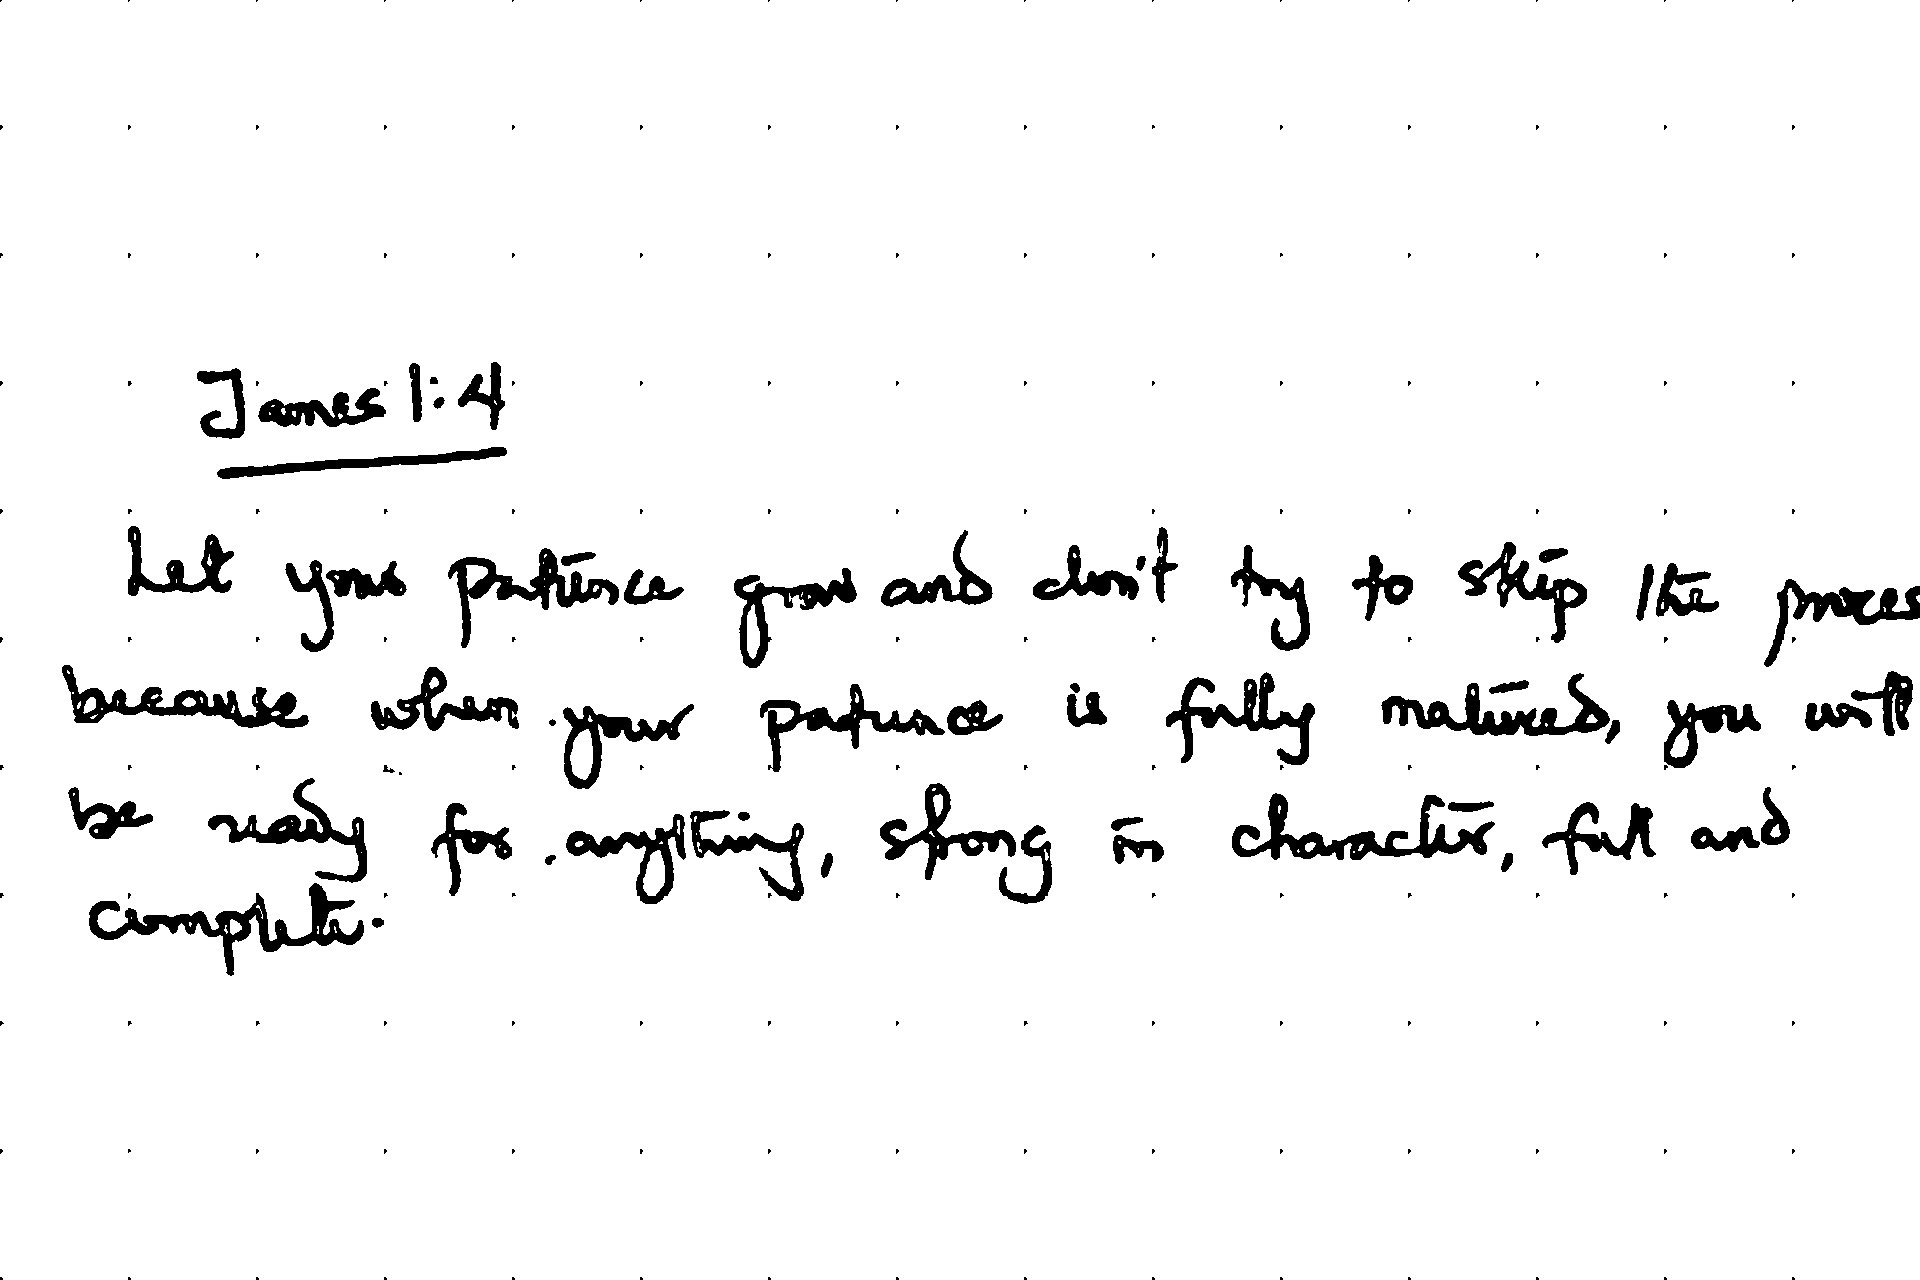 James 1:4
Let your patience grow and don't try to skip the proces
because when your patience is fully matured, you will
be ready for anything, strong in character, full and
complete.